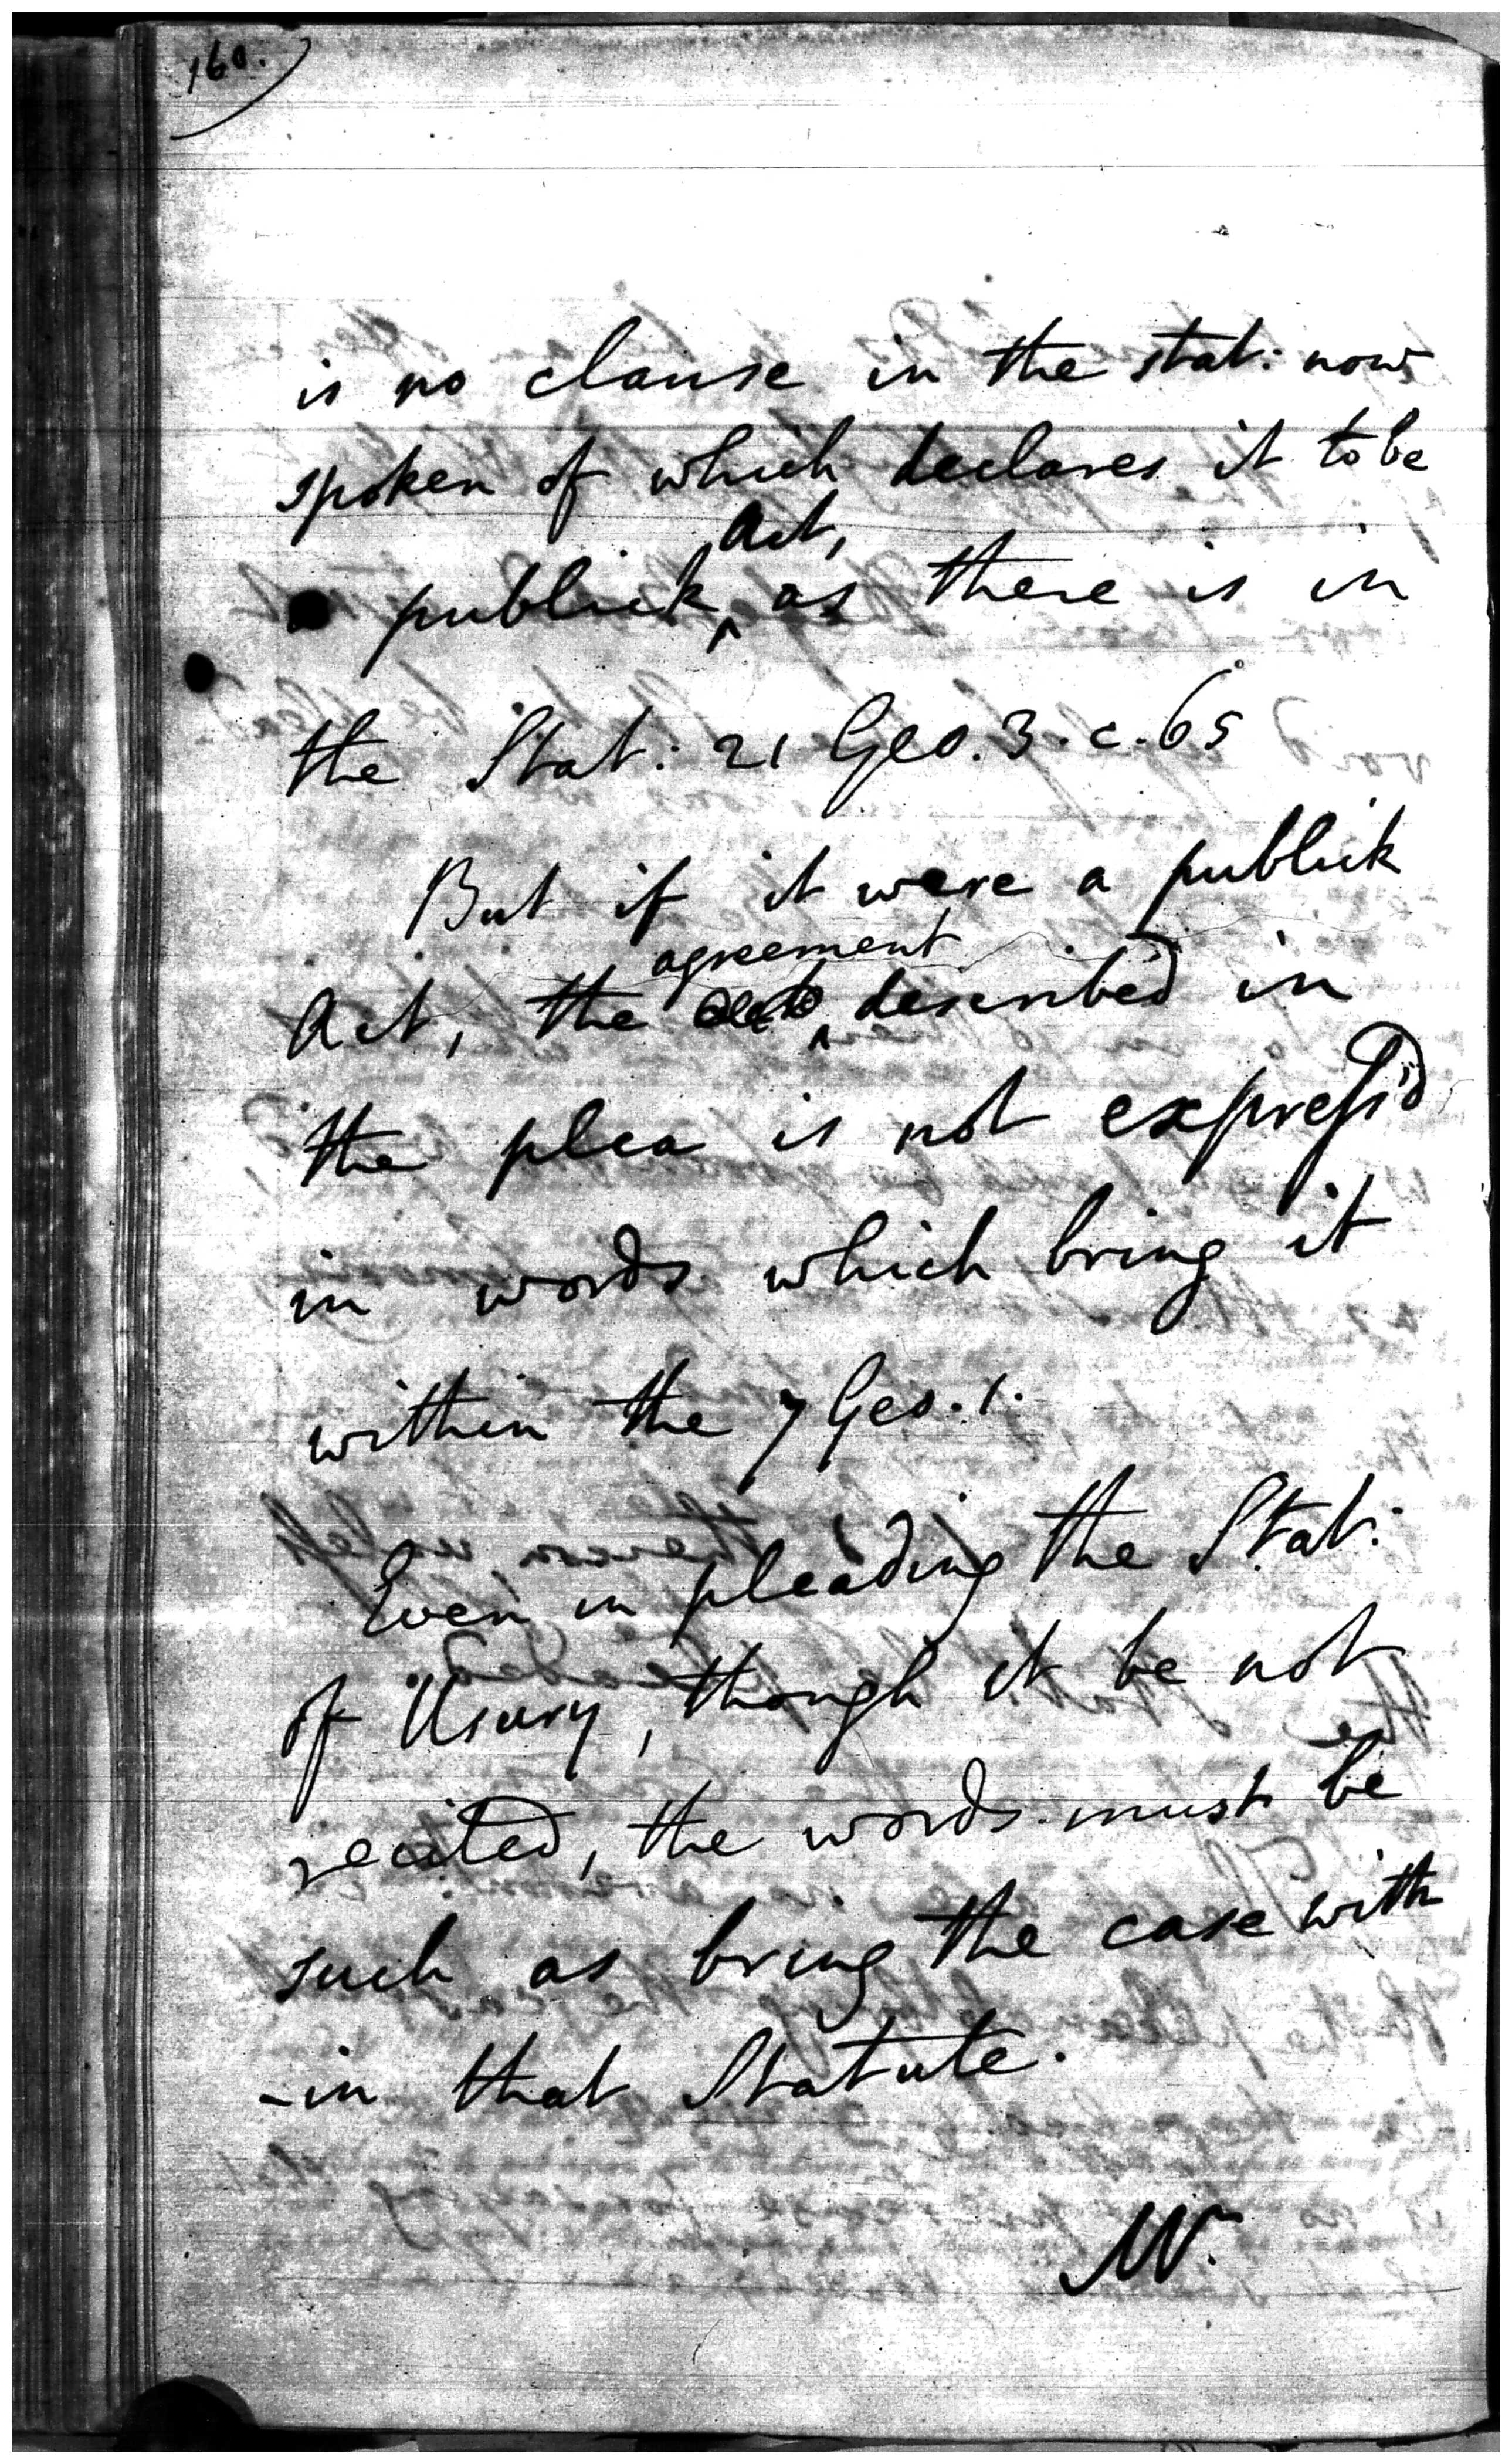 160.
is no clause in the stat: now
spoken of which declares it to be
publick Act, as there is in
the Stat: 21 Geo. 3. c. 65
But if it were a publick
Act, the agreement described in
the plea is not express'd
in words which bring it
within the 7 Geo. 1.
Even in pleading the Stat:
of Usury, though it be not
recited, the words must be
such as bring the case with
-in that Statute.